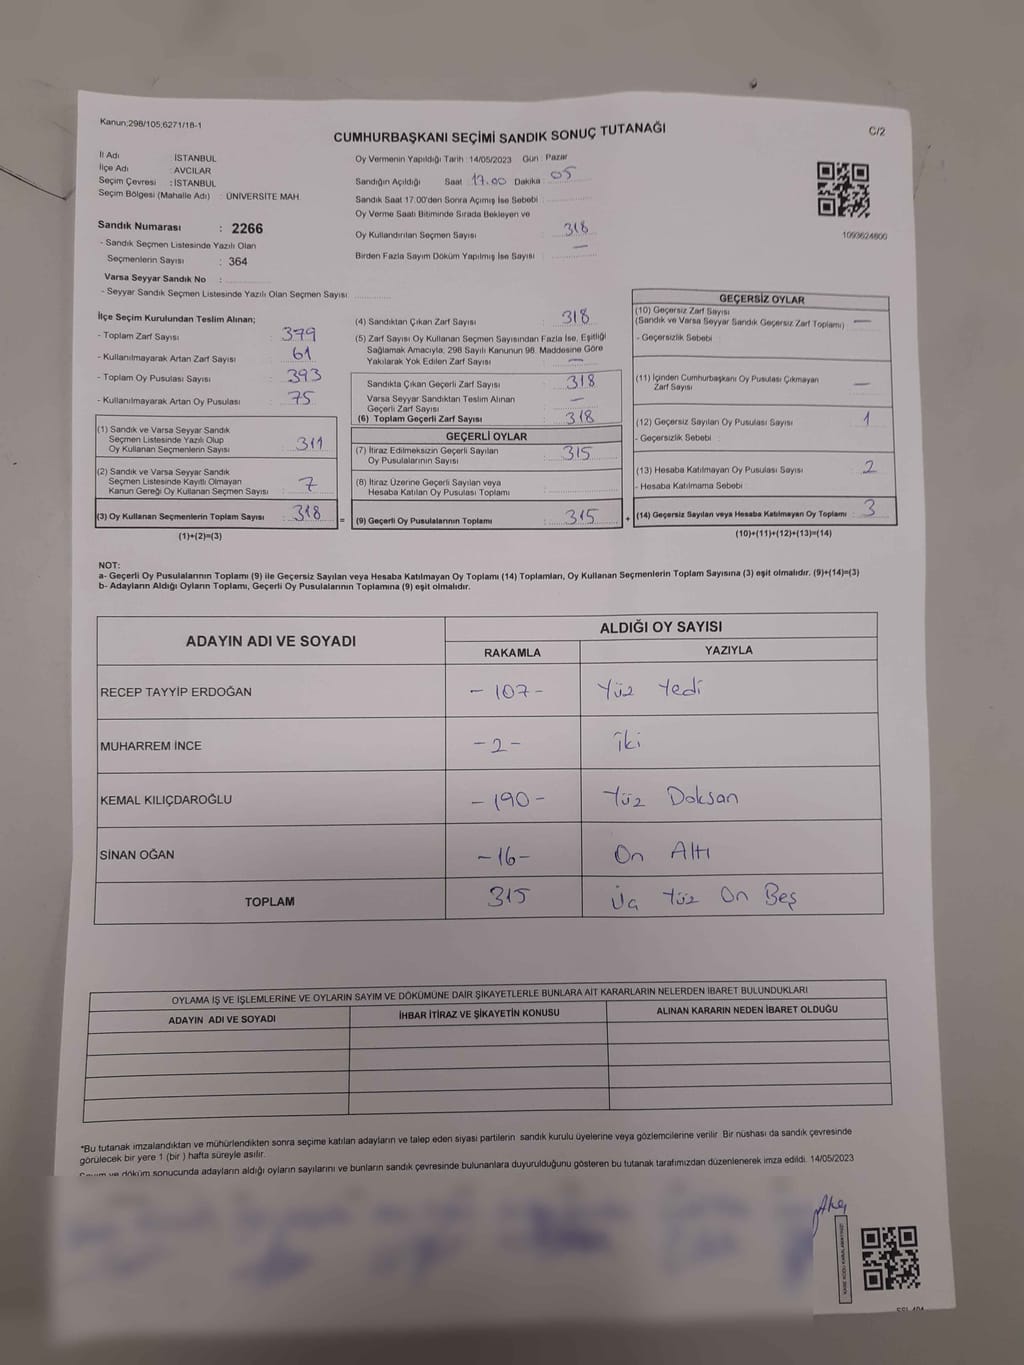 Kanun;298/105;6271/18-1
CUMHURBAŞKANI SEÇİMİ SANDIK SONUÇ TUTANAĞI
C/2
İl Adı : İSTANBUL
İlçe Adı : AVCILAR
Seçim Çevresi : İSTANBUL
Seçim Bölgesi (Mahalle Adı) : ÜNİVERSİTE MAH.
Oy Vermenin Yapıldığı Tarih : 14/05/2023 Gün : Pazar
Sandığın Açıldığı Saat : 17.00 Dakika : 05
Sandık Saat 17:00'den Sonra Açımış İse Sebebi :
Oy Verme Saati Bitiminde Sırada Bekleyen ve
Oy Kullandırılan Seçmen Sayısı : 318
Birden Fazla Sayım Döküm Yapılmış İse Sayısı : —
1093624800
Sandık Numarası : 2266
- Sandık Seçmen Listesinde Yazılı Olan
Seçmenlerin Sayısı : 364
Varsa Seyyar Sandık No :
- Seyyar Sandık Seçmen Listesinde Yazılı Olan Seçmen Sayısı:
İlçe Seçim Kurulundan Teslim Alınan;
- Toplam Zarf Sayısı : 379
- Kullanılmayarak Artan Zarf Sayısı : 61
- Toplam Oy Pusulası Sayısı : 393
- Kullanılmayarak Artan Oy Pusulası : 75
(1) Sandık ve Varsa Seyyar Sandık
Seçmen Listesinde Yazılı Olup
Oy Kullanan Seçmenlerin Sayısı : 311
(2) Sandık ve Varsa Seyyar Sandık
Seçmen Listesinde Kayıtlı Olmayan
Kanun Gereği Oy Kullanan Seçmen Sayısı : 7
(3) Oy Kullanan Seçmenlerin Toplam Sayısı : 318 =
(1)+(2)=(3)
(4) Sandıktan Çıkan Zarf Sayısı : 318
(5) Zarf Sayısı Oy Kullanan Seçmen Sayısından Fazla İse, Eşitliği
Sağlamak Amacıyla, 298 Sayılı Kanunun 98. Maddesine Göre
Yakılarak Yok Edilen Zarf Sayısı : —
Sandıkta Çıkan Geçerli Zarf Sayısı : 318
Varsa Seyyar Sandıktan Teslim Alınan
Geçerli Zarf Sayısı : —
(6) Toplam Geçerli Zarf Sayısı : 318
GEÇERLİ OYLAR
(7) İtiraz Edilmeksizin Geçerli Sayılan
Oy Pusulalarının Sayısı : 315
(8) İtiraz Üzerine Geçerli Sayılan veya
Hesaba Katılan Oy Pusulası Toplamı :
(9) Geçerli Oy Pusulalarının Toplamı : 315 +
GEÇERSİZ OYLAR
(10) Geçersiz Zarf Sayısı
(Sandık ve Varsa Seyyar Sandık Geçersiz Zarf Toplamı) —
- Geçersizlik Sebebi :
(11) İçinden Cumhurbaşkanı Oy Pusulası Çıkmayan
Zarf Sayısı —
(12) Geçersiz Sayılan Oy Pusulası Sayısı : 1
- Geçersizlik Sebebi :
(13) Hesaba Katılmayan Oy Pusulası Sayısı : 2
- Hesaba Katılmama Sebebi :
(14) Geçersiz Sayılan veya Hesaba Katılmayan Oy Toplamı : 3
(10)+(11)+(12)+(13)=(14)
NOT:
a- Geçerli Oy Pusulalarının Toplamı (9) ile Geçersiz Sayılan veya Hesaba Katılmayan Oy Toplamı (14) Toplamları, Oy Kullanan Seçmenlerin Toplam Sayısına (3) eşit olmalıdır. (9)+(14)=(3)
b- Adayların Aldığı Oyların Toplamı, Geçerli Oy Pusulalarının Toplamına (9) eşit olmalıdır.
ADAYIN ADI VE SOYADI
ALDIĞI OY SAYISI
RAKAMLA YAZIYLA
RECEP TAYYİP ERDOĞAN - 107 - Yüz Yedi
MUHARREM İNCE - 2 - İki
KEMAL KILIÇDAROĞLU - 190 - Yüz Doksan
SİNAN OĞAN - 16 - On Altı
TOPLAM 315 Üç Yüz On Beş
OYLAMA İŞ VE İŞLEMLERİNE VE OYLARIN SAYIM VE DÖKÜMÜNE DAİR ŞİKAYETLERLE BUNLARA AİT KARARLARIN NELERDEN İBARET BULUNDUKLARI
ADAYIN ADI VE SOYADI İHBAR İTİRAZ VE ŞİKAYETİN KONUSU ALINAN KARARIN NEDEN İBARET OLDUĞU
*Bu tutanak imzalandıktan ve mühürlendikten sonra seçime katılan adayların ve talep eden siyasi partilerin sandık kurulu üyelerine veya gözlemcilerine verilir. Bir nüshası da sandık çevresinde
görülecek bir yere 1 (bir ) hafta süreyle asılır.
Sayım ve döküm sonucunda adayların aldığı oyların sayılarını ve bunların sandık çevresinde bulunanlara duyurulduğunu gösteren bu tutanak tarafımızdan düzenlenerek imza edildi. 14/05/2023